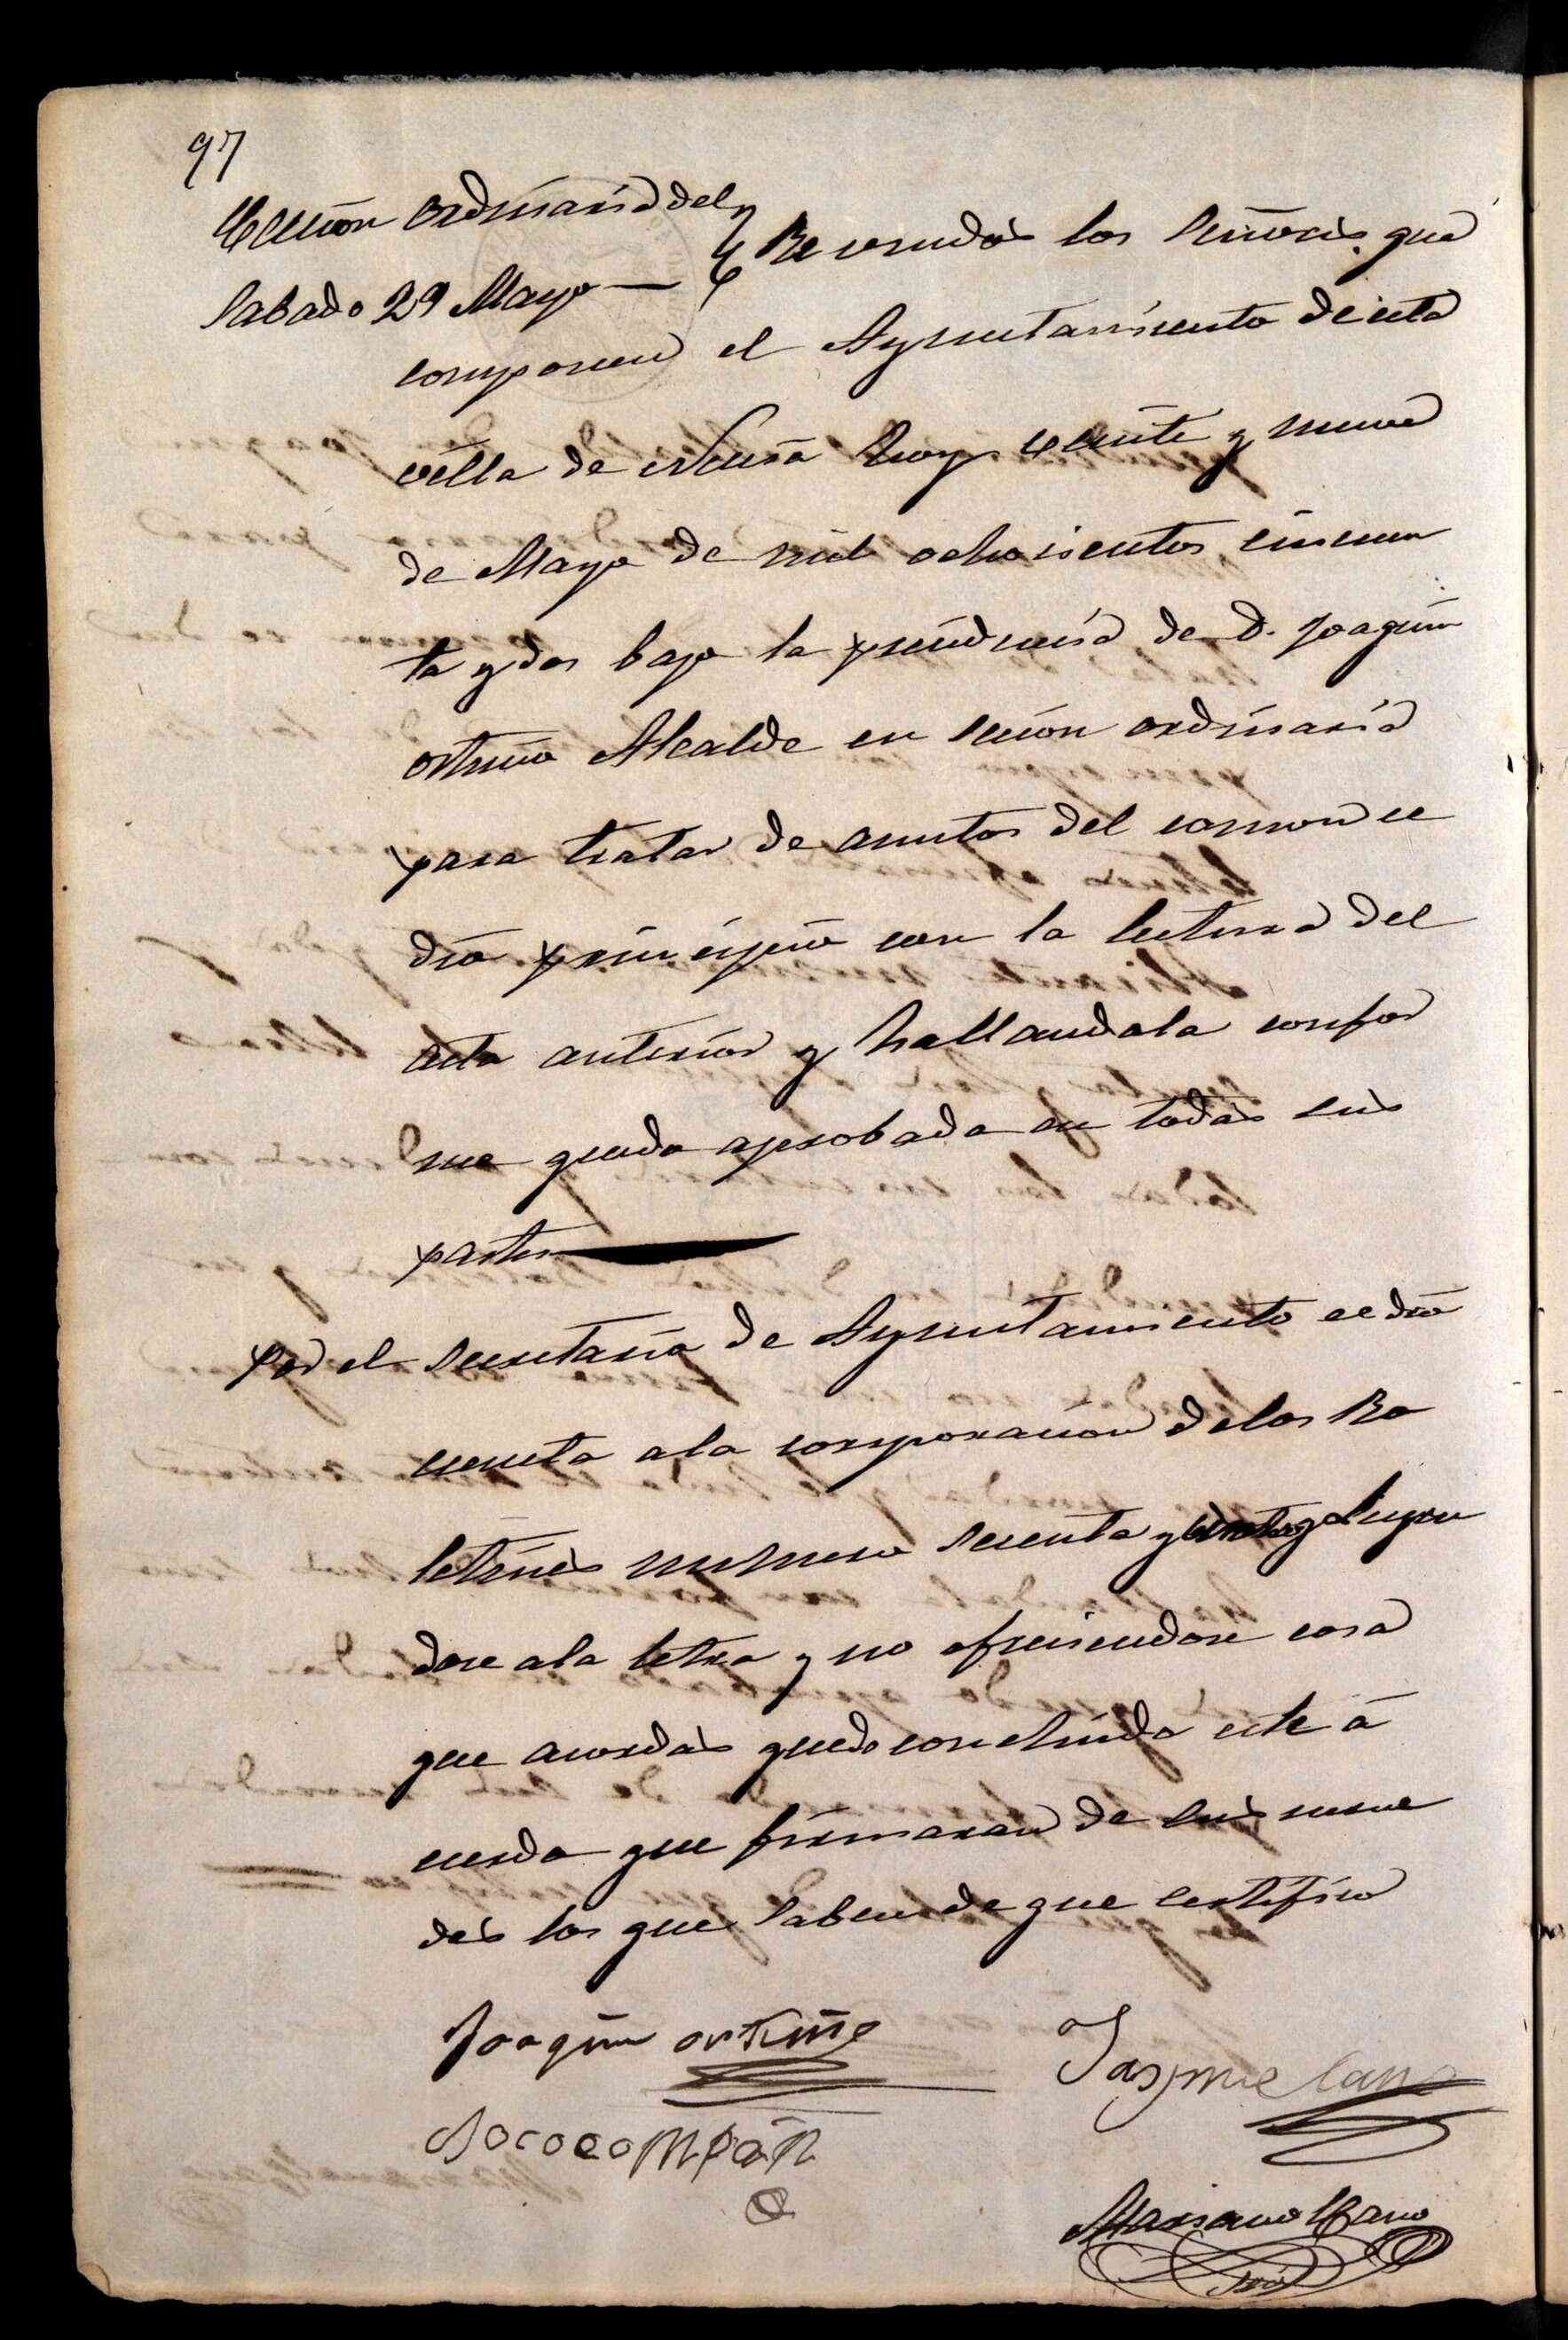 97
Cecion ordinaria del
Sabado 29 Mayo —
Re unidos los Señores que
componen el Ayuntamiento de esta
villa de Nousa hoy veinte y nueve
de Mayo de mil ochosientos sincuen
ta y dos bajo la presidensia de D. Joaquin
ortuño Alcalde en secion ordinaria
para tratar de asuntos del comun se
dio prinsipio con la lectura del
acta anterior y hallandola confor
me queda aprobada en todas sus
partes
Por el secretario de Ayuntamiento se dio
cuenta a la corporacion de los Bo
letines numero sesenta y leyen
dose a la letra y no ofresiendose cosa
que acordar quedo concluido este á
cuerdo que firmaran de sus merse
des los que saben de que certifico
Joaquin ortuño
Jayme Cano
compañ
Mariano Cano
Srio